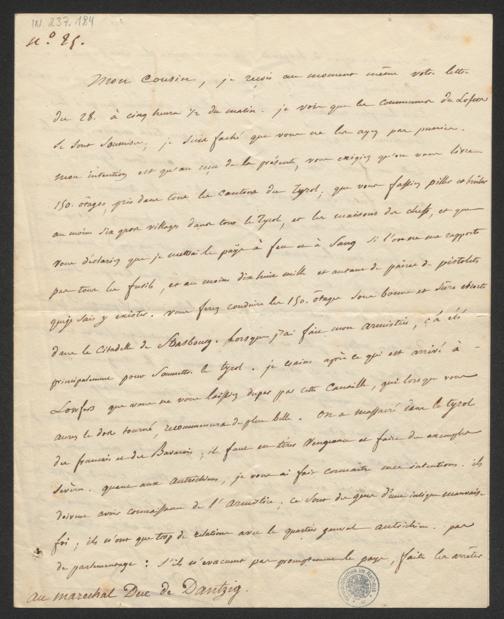 IN 237.184
n.o 25.
Mon Cousin, je reçois au moment même votre lettre
du 28. à cinq heures 1/2 du matin. je vois que les communes du Lofers
se sont Soumises; je Suis faché que vous ne les ayez pas punies.
mon intention est qu'au reçu de la présente, vous exigiez qu'on vous livre
150. ôtages, pris dans tous les Cantons du Tyrol, que vous fassiez piller et brûler
au moins Six gros villages dans tout le Tyrol, et les maisons des chefs, et que
vous déclariez que je mettrai le païs à feu et à Sang Si l'on ne me rapporte
pas tous les fusils, et au moins dix huit mille et autant de paires de pistolets
que je Sais y exister. vous ferez conduire les 150. ôtages Sous bonne et Sûre escorte
dans la Citadelle de Strasbourg. Lorsque j'ai fait mon armistice, ç'a été
principalement pour Soumettre le tyrol. je crains après ce qui est arrivé à
Lowfers que vous ne vous laissiez duper par cette Canaille, qui lorsque vous
aurez le dos tourné recommencera de plus belle. On a massacré dans le tyrol
des français et des Bavarois; il faut en tirer Vengeance et faire des exemples
Sévères. quant aux Autrichiens, je vous ai fait connaitre mes intentions. ils
doivent avoir connaissance de l'Armistice. ce Sont des gens d'une insigne mauvaise
foi; ils n'ont que trop de relations avec le quartier général autrichien. pas
de parlementage: S'ils n'évacuent pas promptement le pays, faites les arrêter
au maréchal Duc de Dantzig.